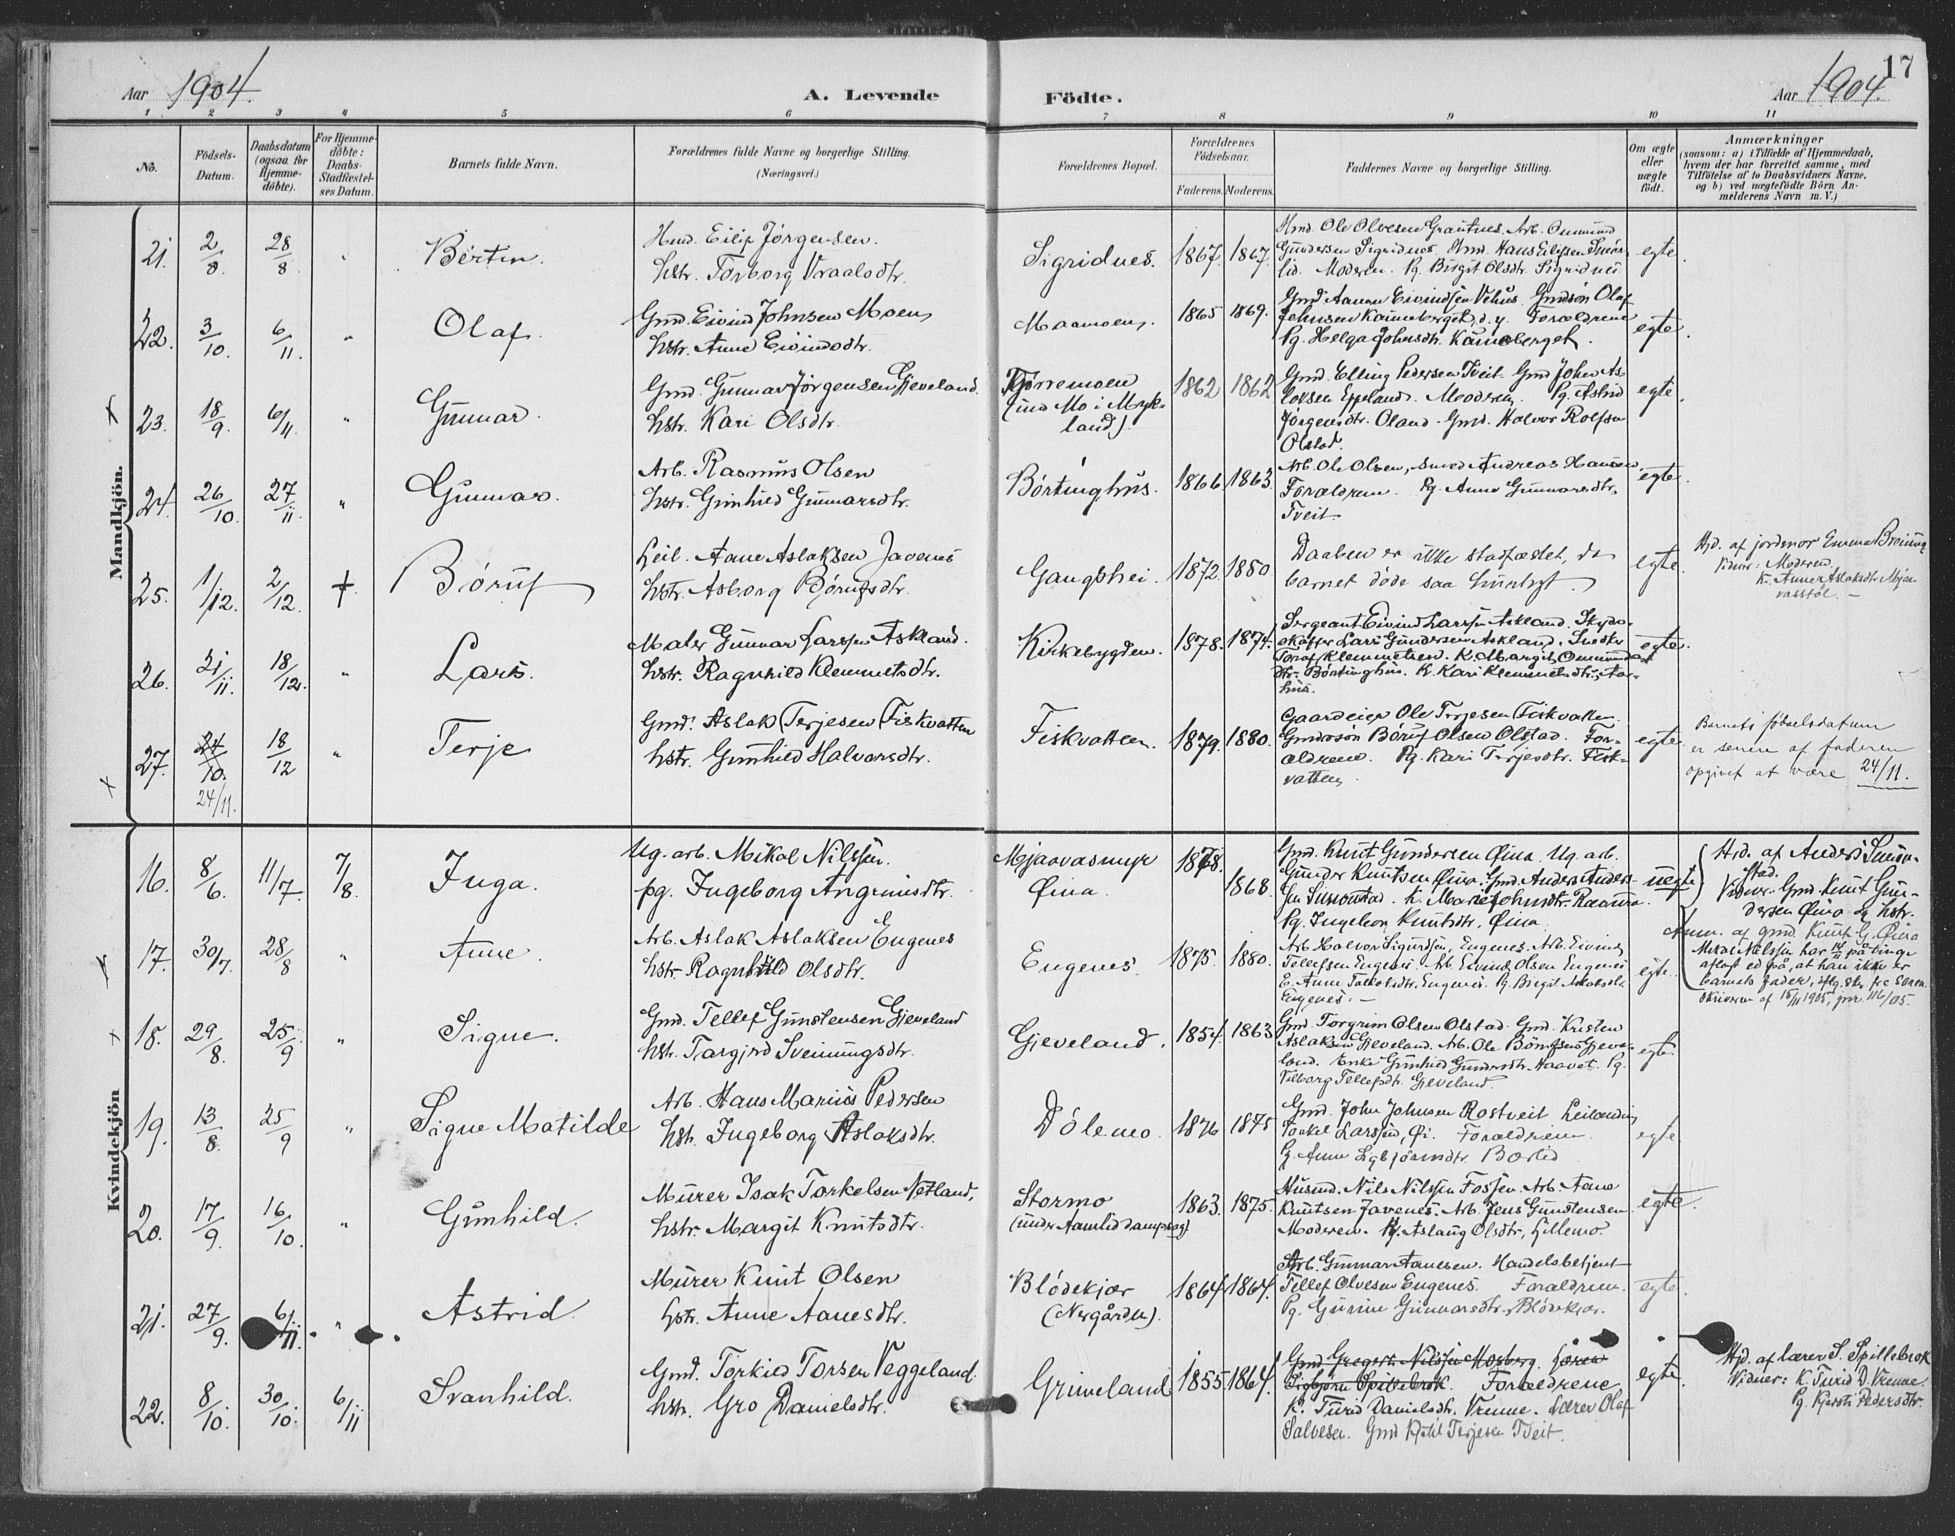 Aar 1904. A. Levende
Födte. Aar 1904. 17
1 2 3 4 5 6 7 8 9 10 11
No.
Födsels-Datum.
Daabsdatum (ogsaa for Hjemme-döbte).
For Hjemme-döbte: Daabs-Stadfæstel-ses Datum.
Barnets fulde Navn.
Forældrenes fulde Navne og borgerlige Stilling.
(Næringsvei.)
Forældrenes Bopæl.
Forældrenes Födselsaar.
Faderens. Moderens.
Faddernes Navne og borgerlige Stilling.
Om ægte eller uægte födt.
Anmærkninger
(saasom: a) i Tilfælde af Hjemmedaab,
hvem der har forrettet samme, med
Tilföielse af to Daabsvidners Navne,
og b) ved uægtefödte Börn An-
melderens Navn m. V.)
Mandkjön.
21. 2/8. 28/8 " Bertin. Hmd. Eilif Jörgensen.
Hstr. Torborg Vraalsdtr.
Sigridnes. 1867. 1867.
Hmd. Ole Olvesen Grautnes. Arb. Onmund
Gundersen Sigridnes. Hmd. Hans Eilifsen
Moderen. Pg. Birgit Olsdtr. Sigridnes
egte.
22. 3/10. 6/11. " Olaf. Gmd. Eivind Johnsen Moen,
Hstr. Anne Eivindsdtr.
Maamoen. 1865 1869.
Gmd Aanon Eivindsen Vehus. Gmdsön Olaf
Johnsen Kanneberget, d. y. Forældrene
Pg. Helga Johnsdtr. Kanneberget.
egte.
23. 18/9. 6/11 " Gunnar. Gmd. Gunnar Jörgensen Gjeveland.
Hstr. Kari Olsdtr.
(und. Mo i Myk-
land) 1862 1862
Gmd. Elling Pedersen Tveit. Gmd John As-
laksen Eppeland. Moderen. Pg. Astrid
Jörgensdtr. Oland. Gmd. Halvor Rolfsen
Olstad.
egte.
24. 26/10. 27/11. " Gunnar. Arb. Rasmus Olsen
Hstr. Gunhild Gunnarsdtr.
Börtinghus. 1866 1863
Arb. Ole Olsen, Smed Andreas Hansen,
Forældrene. Pg. Anne Gunnarsdtr.
Tveit.
egte.
25. 1/12. 2/12. † Börüf Leil. Aane Aslaksen Javenes
Hstr. Asborg Börufsdtr.
Gangshei. 1872. 1880.
Daaben er ikke stadfæstet, da
barnet döde saa hurtigt.
egte. Hjd. af jordmor Emma Breiung
Vidner: Moderen
K. Anne Aslaksdtr. Mjaa-
vasstöl.
26. 21/11. 18/12. " Lars. Maler Gunnar Larssen Askland.
Hstr. Ragnhild Klemmetsdtr.
Kirkebygden. 1878. 1874.
Sergeant Eivind Larssen Askland. Skyds-
skaffer Lars Gundersen Askland. Snedker
Toraf Klemmetsen. K. Margit Onmunds-
dtr. Börtinghus. K. Kari Klemmetsdtr.
egte.
27. 24/10. 24/11. 18/12 " Terje Gmd. Aslak Terjesen Fiskvatten
Hstr. Gunhild Halvorsdtr.
Fiskvatten. 1879. 1880.
Gaardeier Ole Terjesen Fiskvatten
Gmdssön Börüf Olsen Olstad. For-
ældrene. Pg. Kari Terjesdtr. Fisk-
vatten,
egte. Barnets födselsdatum
er senere af faderen
opgivet at være 24/11.
Kvindekjön
16. 8/6. 11/7. 7/8. Inga. Ug. arb. Mikal Nilssen.
pg. Ingeborg Angrimsdtr.
Mjaavasmyr
Öina. 1878. 1868.
Gmd. Knut Gundersen Öina. Ug. arb.
Gunder Knutsen Öina. Gmd. Anders Anders-
sen Simonstad. K. Marie Johnsdtr. Raaven.
Pg. Ingeborg Knutsdtr. Öina.
uegte Hjd. af Anders Simon-
stad.
Vidner: Gmd. Knut Gun-
dersen Öina og Hstr.
Anm. af gmd. Knut G. Öina
Mikal Nilssen har 14/11 på tinge
aflagt ed på, at han ikke er
barnets fader, iflg. skr. fra soren-
skriveren af 15/11 1905, jnr. 116/05.
17. 30/7. 28/8 " Anne. Arb. Aslak Aslaksen Eugenes
Hstr. Ragnhild Olsdtr.
Eugenes. 1875. 1880.
Arb. Halvor Sigurdsen, Eugenes. Arb. Eivind
Tellefsen Eugenes. Arb. Eivind Olsen Eugenes
E. Anne Eugenes. Pg. Birgit Aslaksdtr.
Eugenes.
egte.
18. 29/8. 25/9 " Signe. Gmd. Tellef Gunstensen Gjeveland
Hstr. Targjerd Sveinungsdtr.
Gjeveland. 1854. 1863
Gmd. Torgrim Olsen Olstad. Gmd. Kristen
Aslaksen Gjeveland. Arb. Ole Gjeve-
land. Enke Gunhild Gundersdtr. Haavet. Pg.
Vilborg Tellefsdtr. Gjeveland
egte.
19. 13/8. 25/9 " Signe Matilde Arb. Hans Marius Pedersen
Hstr. Ingeborg Aslaksdtr.
Dölemo. 1876 1875
Gmd. John Johnsen Rostveit Leilænding
Torkel Larssen, Öi. Forældrene
Pg. Anne
egte
20. 17/9. 16/10. " Gunhild. Murer Isak Torkelsen Netland,
Hstr. Margit Knutsdtr.
Stormo
(under Aamlid dampsag) 1863. 1875.
Husmd. Nils Nilssen Fossen. Arb. Aane
Knutsen Javenes. Arb. Jens Gunstensen
Moderen. Pg. Aslaug Olsdtr, Lillemo.
egte.
21. 27/9. 6/11. " Astrid. Murer Knut Olsen
Hstr. Anne Aanesdtr.
Blödekjær
(Nergården). 1864 1864.
Arb. Gunnar Aanesen. Handelsbetjent
Tellef Olvesen Eugenes. Forældrene.
Pg. Gurine Gunnarsdtr. Blödekjær.
egte.
22. 8/10. 30/10. 6/11 Svanhild. Gmd. Torkild Torsen Veggeland.
Hstr. Gro Danielsdtr.
Grimeland 1855 1864.
Gmd Gregert Nilssen Mosberg. Lærer
Sigbjörn Spillebrok. Forældrene
K. Turid Danielsdtr. Vrenne. Lærer Olaf
Salvesen. Gmd Ketil Terjesen Tveit.
egte. Hjd. af lærer S. Spillebrok
Vidner: K. Turid D. Vrenne.
Pg. Kjersti Pedersdtr.